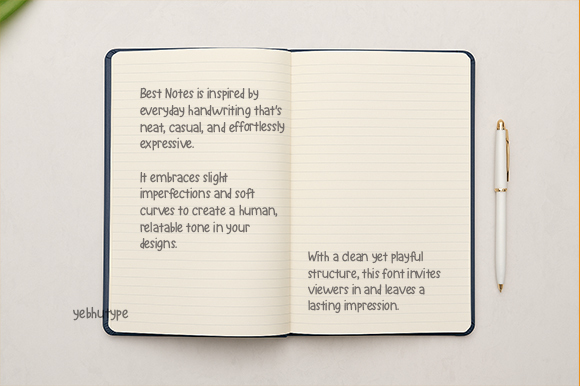 Best Notes is inspired by
everyday handwriting that's
neat, casual, and effortlessly
expressive.
It embraces slight
imperfections and soft
curves to create a human,
relatable tone in your
designs.
With a clean yet playful
structure, this font invites
viewers in and leaves a
lasting impression.
yebhutype